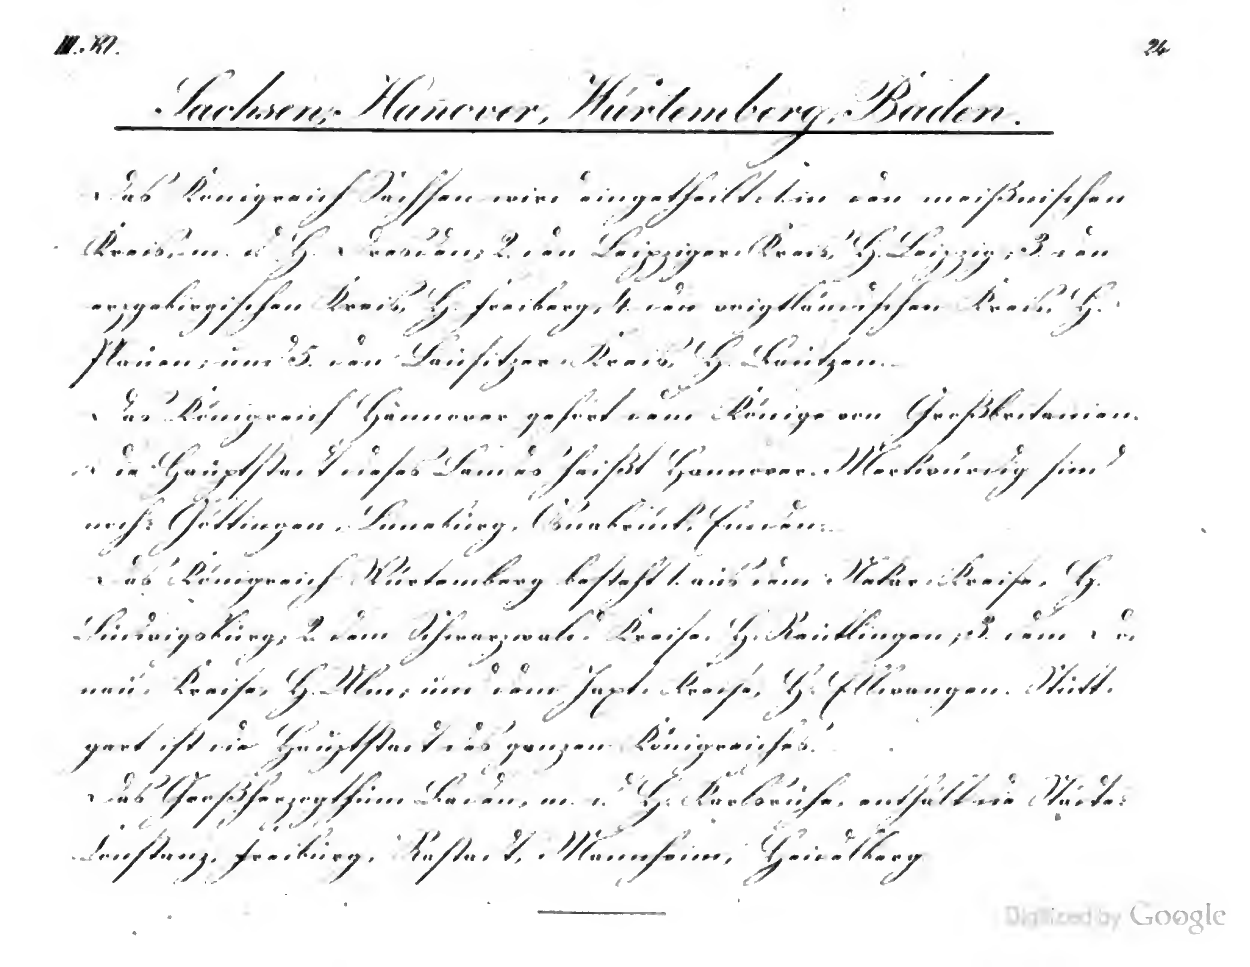 III. Kl. 24
Sachsen, Hanover, Würtemberg, Baden.
Das Königreich Sachsen wird eingetheilt 1. in den meißnischen
Kreis, m. d. H. Dresden; 2. den Leipziger Kreis, H. Leipzig; 3. den
erzgebirgischen Kreis, H. Freiberg; 4. den voigtländischen Kreis, H.
Plauen; und 5. den Lausitzer Kreis, H. Bautzen.
Das Königreich Hannover gehört dem Könige von Großbritanien.
Die Hauptstadt dieses Landes heißt Hannover. Merkwürdig sind
noch: Göttingen, Lüneburg, Osnabrück, Emden.
Das Königreich Würtemberg besteht 1. aus dem Nekar-Kreise, H.
Ludwigsburg; 2. dem Schwarzwald-Kreise, H. Reutlingen; 3. dem Do-
nau-Kreise, H. Ulm; und dem Jaxt-Kreise, H. Ellwangen. Stutt-
gart ist die Hauptstadt des ganzen Königreiches.
Das Großherzogthum Baden, m. d. H. Karlsruhe, enthält die Städte:
Konstanz, Freiburg, Rastadt, Mannheim, Heidelberg
Digitized by Google